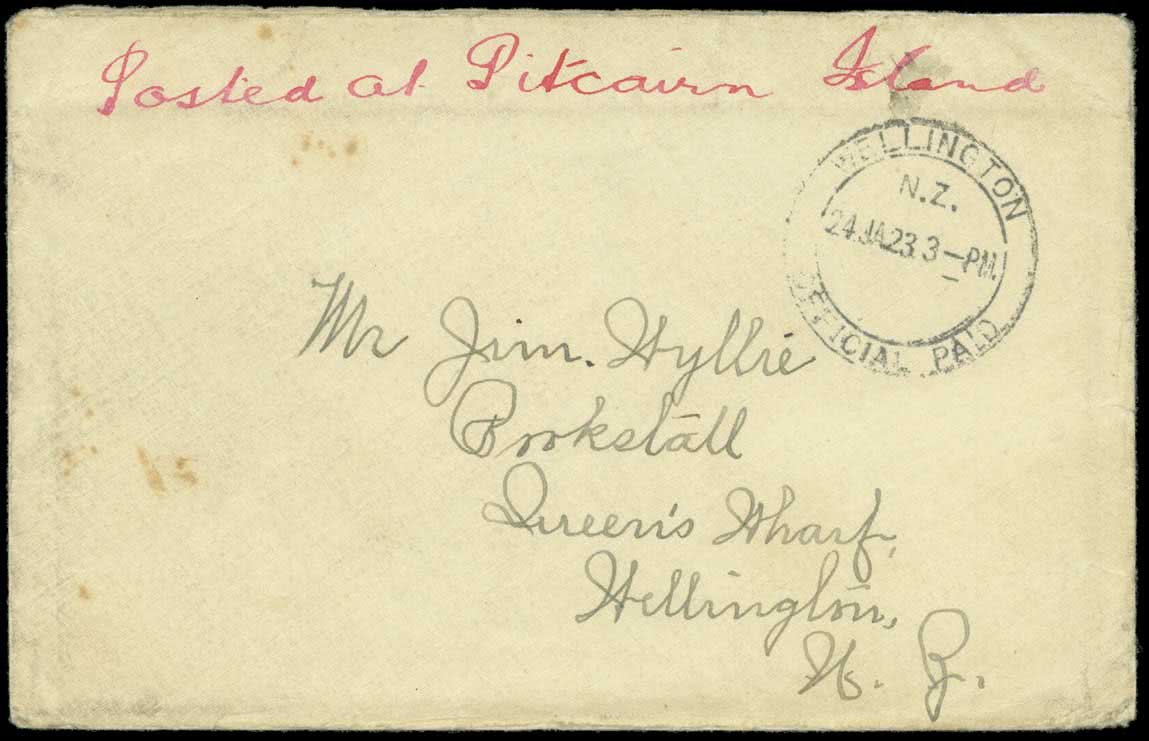 Posted at Pitcairn Island
WELLINGTON
N.Z.
24 JA 23 3 — PM.
OFFICIAL PAID
Mr Jim. Wyllie
Bookstall
Queen's Wharf,
Wellington,
N. Z.